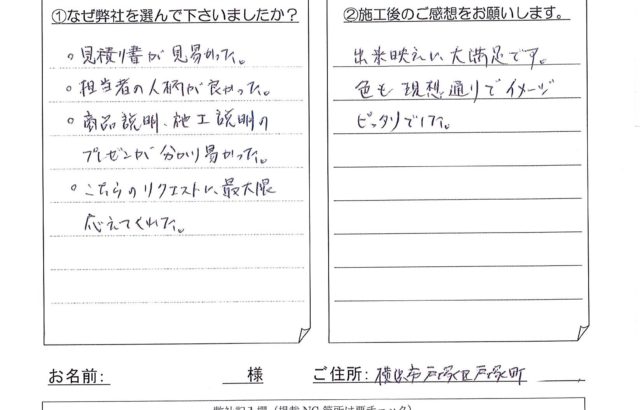 ①なぜ弊社を選んで下さいましたか？
○見積り書が見易かった。
○担当者の人柄が良かった。
○商品説明、施工説明の
プレゼンが分かり易かった。
○こちらのリクエストに、最大限
応えてくれた。
②施工後のご感想をお願いします。
出来映えに大満足です。
色も理想通りでイメージ
ピッタリでした。
お名前: 様
ご住所: 横浜市戸塚区戸塚町
弊社記入欄（掲載NG箇所は要チェック）